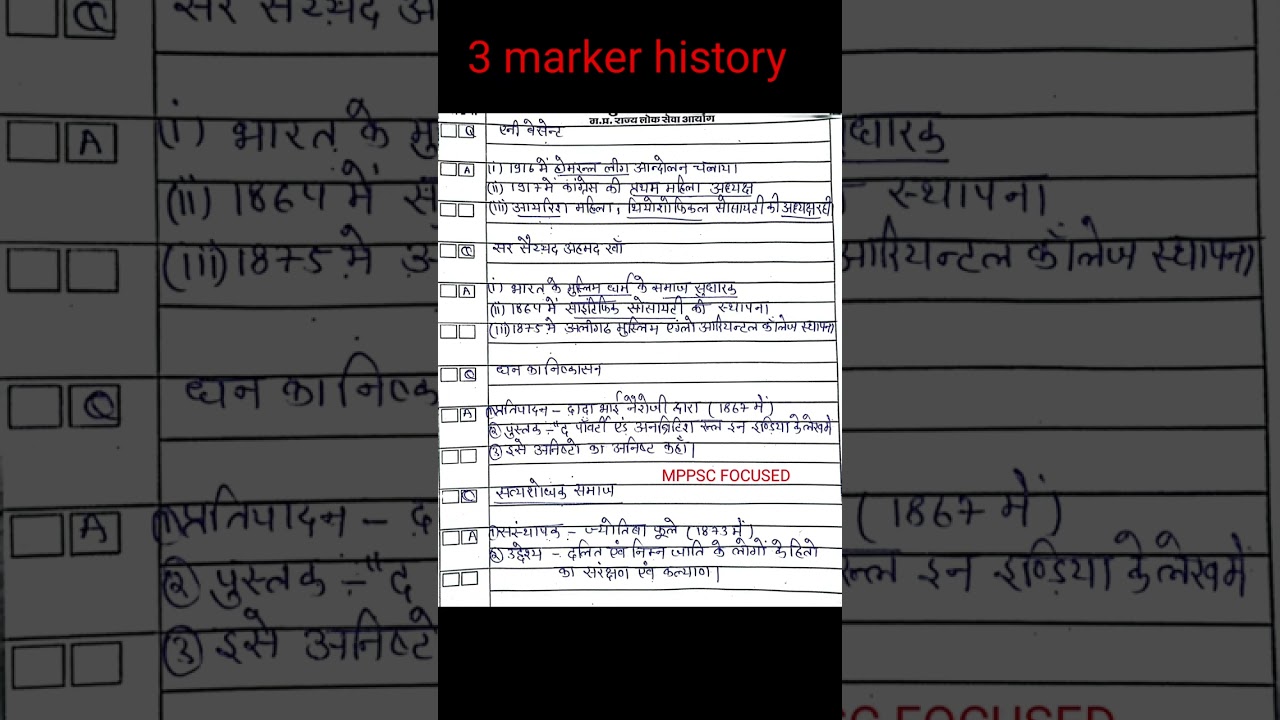 3 marker history
म.प्र. राज्य लोक सेवा आयोग
Q एनी बेसेन्ट
A (i) 1916 में होमरूल लीग आन्दोलन चलाया।
(ii) 1917 में कांग्रेस की प्रथम महिला अध्यक्ष
(iii) आयरिश महिला, थियोसोफिकल सोसायटी की अध्यक्ष रही
Q सर सैय्यद अहमद खाँ
A (i) भारत के मुस्लिम धर्म के समाज सुधारक
(ii) 1864 में साइंटिफिक सोसायटी की स्थापना।
(iii) 1875 में अलीगढ मुस्लिम एंग्लो आरियन्टल कॉलेज स्थापना
Q धन का निष्कासन
A प्रतिपादन - दादा भाई नैरोजी द्वारा (1867 में)
② पुस्तक :- "द पॉवर्टी एंड अनब्रिटिश रूल इन इण्डिया के लेख में
③ इसे अनिष्टो का अनिष्ट कहाँ।
MPPSC FOCUSED
Q सत्यशोधक समाज
A संस्थापक - ज्योतिबा फूले (1873 में)
② उद्देश्य - दलित एंव निम्न जाति के लोगों के हितो
का संरक्षण एंव कल्याण।